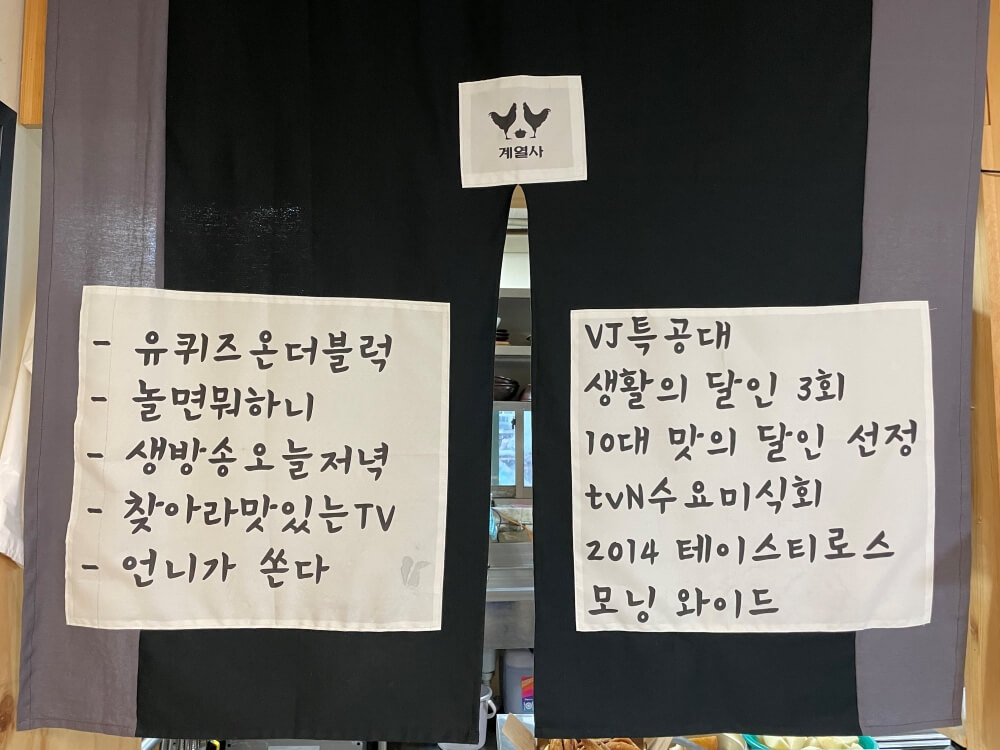 계열사
- 유퀴즈온더블럭
- 놀면뭐하니
- 생방송오늘저녁
- 찾아라맛있는TV
- 언니가 쏜다
VJ특공대
생활의 달인 3회
10대 맛의 달인 선정
tvN수요미식회
2014 테이스티로스
모닝 와이드